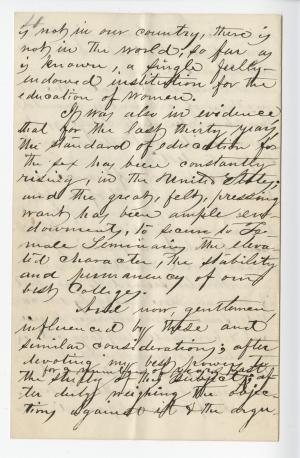 is not in our country, there is
not in the world, so far as
is known, a single fully-
endowed institution for the
education of women.
It was also in evidence
that for the last thirty years
the standard of education for
the sex has been constantly
rising, in the United States;
and the great, felt, pressing
want has been ample en-
dowments, to secure to Fe-
male Seminaries the eleva-
ted character, the stability
and permanency of our
best Colleges.
And now, gentlemen,
influenced by these and
similar considerations; after
devoting my best powers to
the study of this subject
for a number of years past; af-
ter duly weighing the objec-
tions against it & the argu-